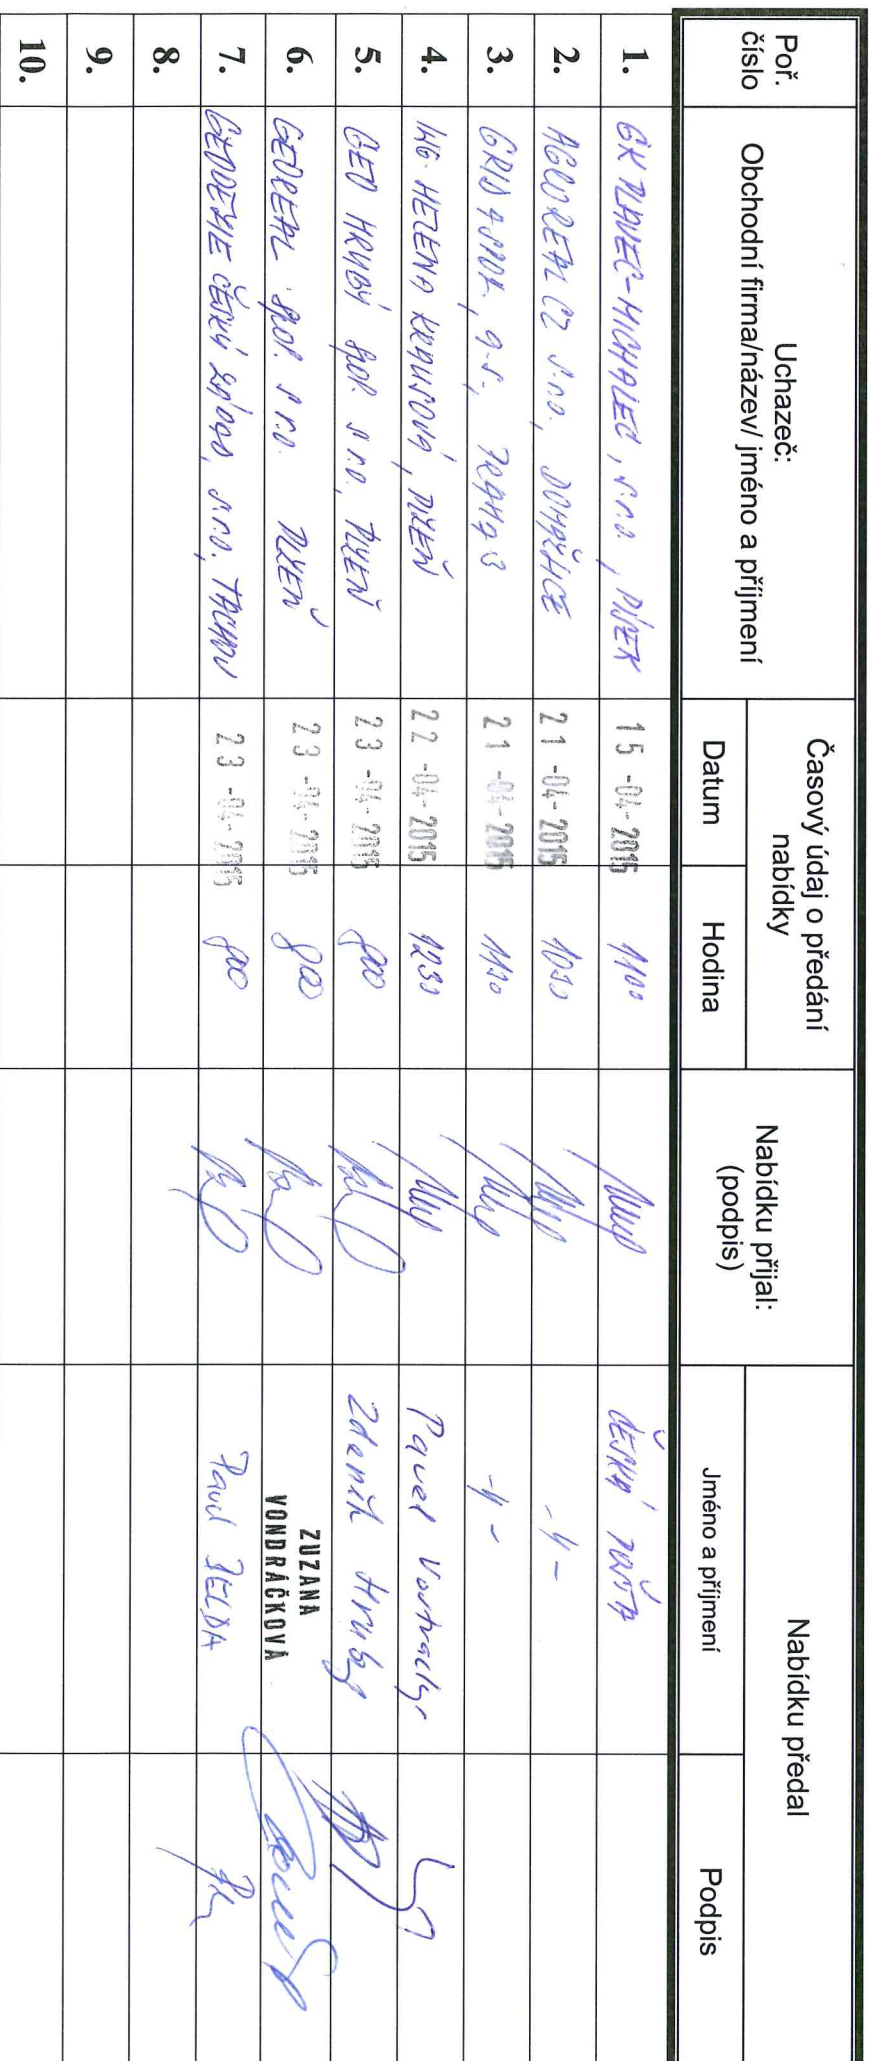 Poř. číslo
Uchazeč:
Obchodní firma/název/ jméno a příjmení
Časový údaj o předání nabídky
Datum
Hodina
Nabídku přijal:
(podpis)
Nabídku předal
Jméno a příjmení
Podpis
1. GK PLAVEC-MICHALEC, s.r.o., PÍSEK 15 -04- 2015 1100 ČESKÁ POŠTA
2. AGROREAL CZ s.r.o., DOMAŽLICE 21 -04- 2015 1030 -"-
3. GRID a.s., PRAHA 3 21 -04- 2015 1130 -"-
4. ING. HELENA KRAUSOVÁ, PLZEŇ 22 -04- 2015 1230 Pavel
5. GEO HRUBÝ spol. s r.o., PLZEŇ 23 -04- 2015 800 Zdeněk Hrubý
6. GEOREAL spol. s r.o. PLZEŇ 23 -04- 2015 800 ZUZANA VONDRÁČKOVÁ
7. GEODEZIE ČESKÝ ZÁPAD, s.r.o. TACHOV 23 -04- 2015 800 Pavel
8.
9.
10.